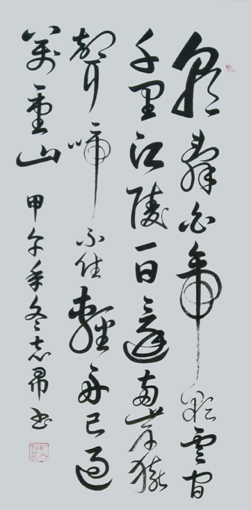 朝辭白帝彩雲間
千里江陵一日還兩岸猿
聲啼不住輕舟已過
萬重山 甲午年冬志书